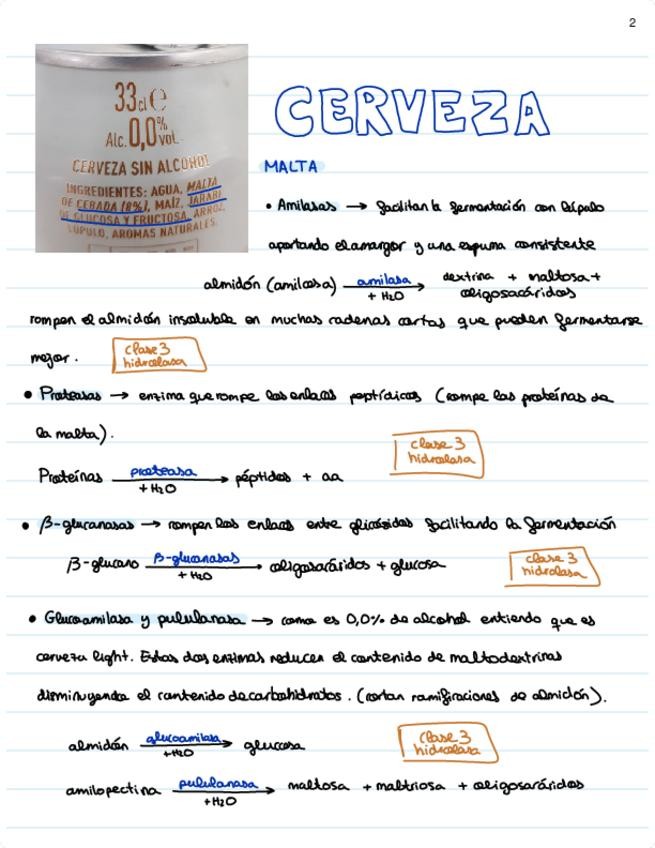 2
33 cl e
Alc. 0,0% vol.
CERVEZA SIN ALCOHOL
INGREDIENTES: AGUA, MALTA
DE CEBADA (8%), MAÍZ, JARABE
DE GLUCOSA Y FRUCTOSA, ARROZ,
LÚPULO, AROMAS NATURALES.
CERVEZA
MALTA
• Amilasas → facilitan la fermentación con lúpulo
aportando el amargor y una espuma consistente
almidón (amilosa) amilasa + H2O → dextrina + maltosa +
oligosacáridos
rompen el almidón insoluble en muchas cadenas cortas que pueden fermentarse
mejor. clase 3
hidrolasa
• Proteasas → enzima que rompe los enlaces peptídicos (rompe las proteínas de
la malta).
clase 3
hidrolasa
Proteínas proteasa + H2O → péptidos + aa
• β-glucanasas → rompen los enlaces entre glicósidos facilitando la fermentación
β-glucano β-glucanasas + H2O → oligosacáridos + glucosa
clase 3
hidrolasa
• Glucoamilasa y pululanasa → como es 0,0% de alcohol entiendo que es
cerveza light. Estas dos enzimas reducen el contenido de maltodextrinas
disminuyendo el contenido de carbohidratos. (cortan ramificaciones de almidón).
almidón glucoamilasa +H2O → glucosa
clase 3
hidrolasa
amilopectina pululanasa +H2O → maltosa + maltriosa + oligosacáridos